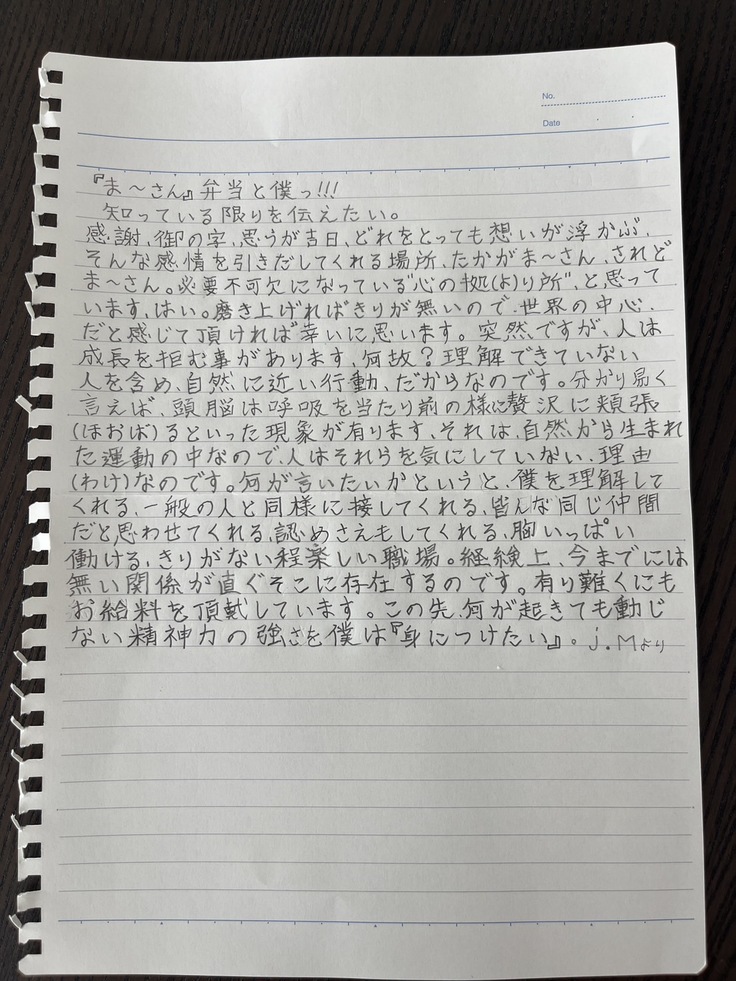 No.
Date
『ま〜さん』弁当と僕っ!!!
知っている限りを伝えたい。
感謝、御の字、思うが吉日、どれをとっても想いが浮かぶ、
そんな感情を引きだしてくれる場所、たかがま〜さん、されど
ま〜さん。必要不可欠になっている"心の拠(よ)り所"、と思って
います、はい。磨き上げればきりが無いので、世界の中心、
だと感じて頂ければ幸いに思います。突然ですが、人は
成長を拒む事があります、何故？理解できていない
人を含め、自然に近い行動、だからなのです。分かり易く
言えば、頭脳は呼吸を当たり前の様に贅沢に頬張
(ほおば)るといった現象が有ります、それは、自然から生まれ
た運動の中なので、人はそれらを気にしていない、理由
(わけ)なのです。何が言いたいかというと、僕を理解して
くれる、一般の人と同様に接してくれる、皆んな同じ仲間
だと思わせてくれる、認めさえもしてくれる、胸いっぱい
働ける、きりがない程楽しい職場。経験上、今までには
無い関係が直ぐそこに存在するのです。有り難くにも
お給料を頂戴しています。この先、何が起きても動じ
ない精神力の強さを僕は『身につけたい』。j.Mより